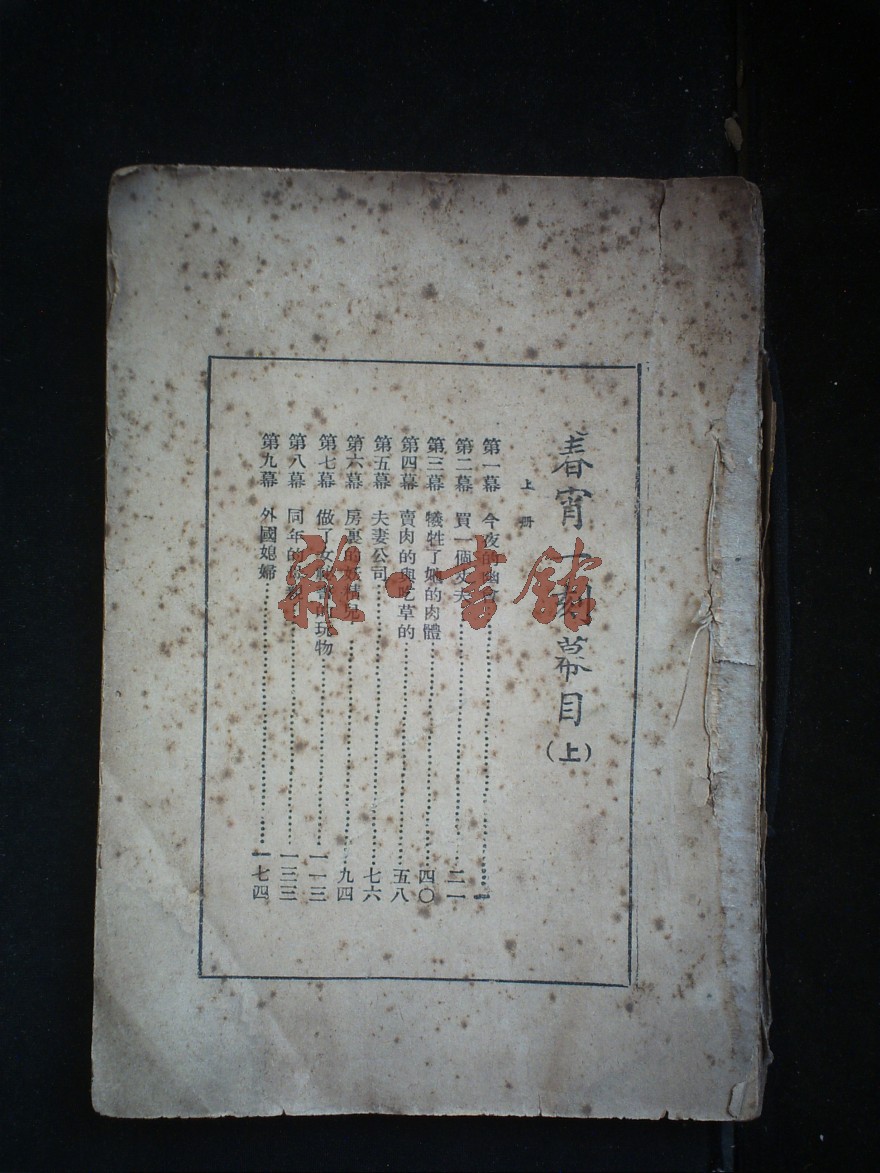 春宵一刻幕目(上)
上册
第一幕 今夜的幽會 一
第二幕 買一個丈夫 二一
第三幕 犧牲了她的肉體 四〇
第四幕 賣肉的與吃草的 五八
第五幕 夫妻公司 七六
第六幕 房裏的妖精兒 九四
第七幕 做了女 的玩物 一一三
第八幕 同年的 親 一三三
第九幕 外國媳婦 一七四
雜·書館